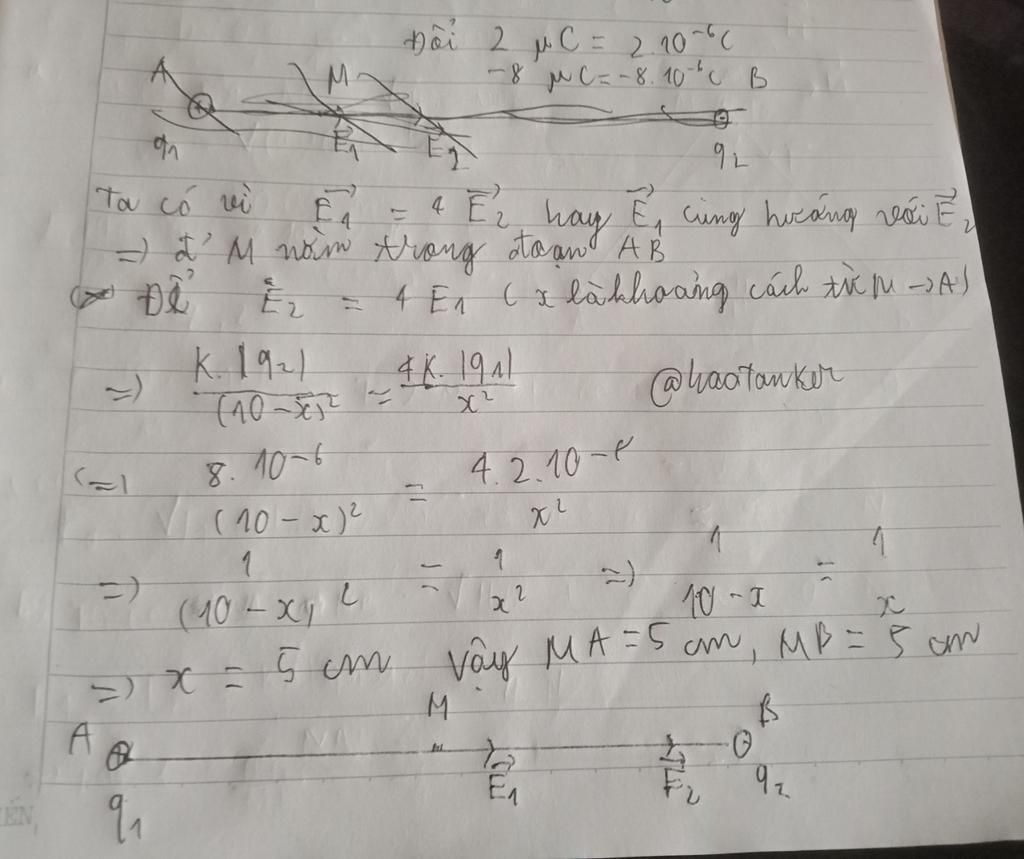 Đổi 2 μC = 2.10⁻⁶C
-8 μC = -8.10⁻⁶C
A M B
q₁ E₁ E₂ q₂
Ta có vì E₁→ = 4 E₂→ hay E₁→ cùng hướng với E₂→
=) đ' M nằm trong đoạn AB
Để E₂ = 4 E₁ ( x là khoảng cách từ M -> A)
=) K.|q₂| / (10-x)² = 4K.|q₁| / x² @haotanker
(=) 8. 10⁻⁶ / (10-x)² = 4.2.10⁻⁶ / x²
=) 1 / (10-x)² = 1 / x² =) 1 / 10-x = 1 / x
=) x = 5 cm Vậy MA = 5 cm, MB = 5 cm
A M B
E₁→ E₂→
q₁ q₂